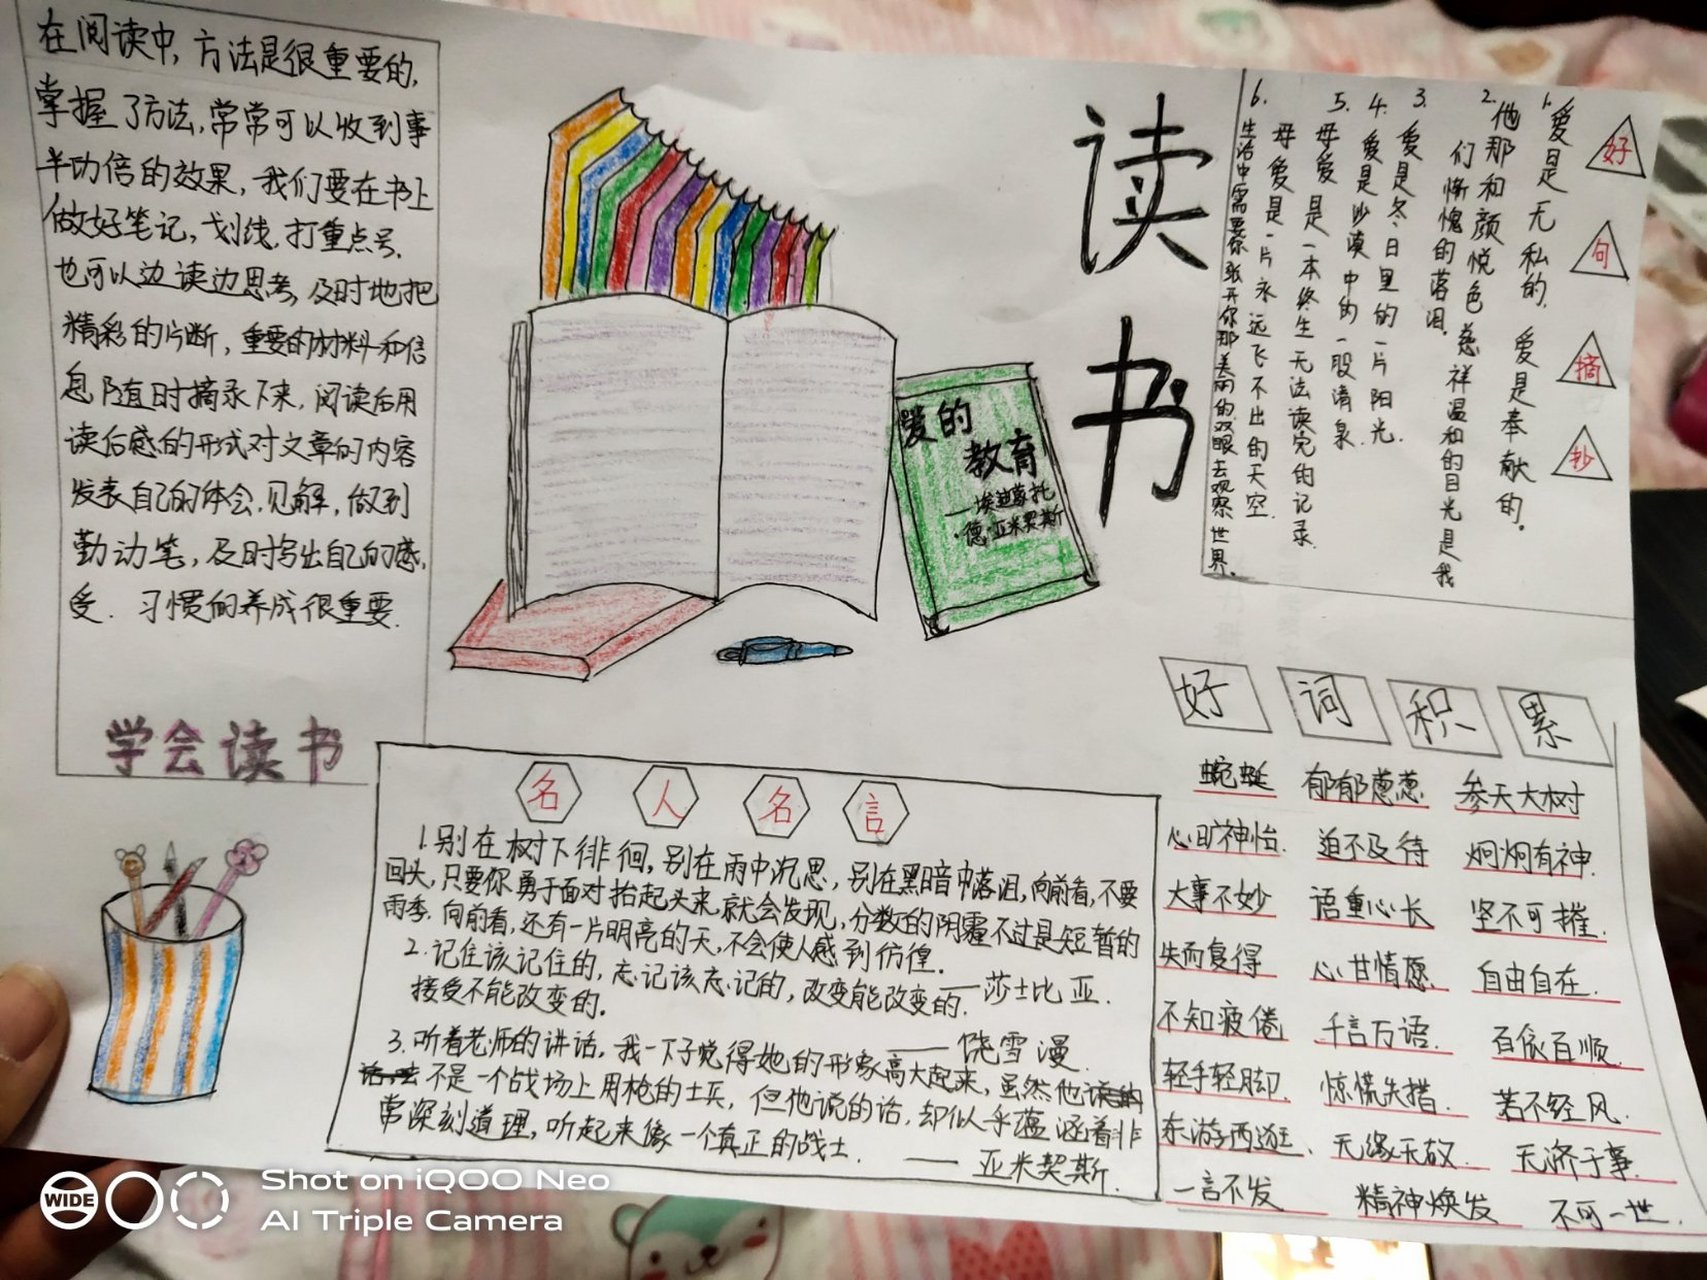 在阅读中,方法是很重要的,
掌握了方法,常常可以收到事
半功倍的效果,我们要在书上
做好笔记,划线,打重点号.
也可以边读边思考,及时地把
精彩的片断,重要的材料和信
息随时摘录下来,阅读后用
读后感的形式对文章的内容
发表自己的体会.见解,做到
勤动笔,及时写出自己的感.
受.习惯的养成很重要.
学会读书
爱的
教育
——埃迪蒙托
·德·亚米契斯
读书
好句摘抄
1.爱是无私的,爱是奉献的。
2.他那和颜悦色慈祥温和的目光是我
们惭愧的落泪.
3.爱是冬日里的一片阳光.
4.爱是沙漠中的一股清泉.
5.母爱是一本终生无法读完的记录.
母爱是一片永远飞不出的天空.
6.生活中需要你张开你那美丽的双眼去观察世界.
名人名言
1.别在树下徘徊,别在雨中沉思,别在黑暗中落泪,向前看,不要
回头,只要你勇于面对抬起头来,就会发现,分数的阴霾不过是短暂的
雨季.向前看,还有一片明亮的天,不会使人感到彷徨.
——莎士比亚.
2.记住该记住的,忘记该忘记的,改变能改变的.
接受不能改变的.
——饶雪漫
3.听着老师的讲话,我一下子觉得她的形象高大起来,虽然他
不是一个战场上用枪的士兵,但他说的话,却似乎蕴涵着非
常深刻道理,听起来像一个真正的战士.
——亚米契斯.
好词积累
蜿蜒 郁郁葱葱. 参天大树
心旷神怡. 迫不及待 炯炯有神.
大事不妙 语重心长 坚不可摧.
失而复得 心甘情愿. 自由自在.
不知疲倦 千言万语. 百依百顺.
轻手轻脚. 惊慌失措. 若不经风.
东游西逛. 无缘无故. 无济于事.
一言不发 精神焕发 不可一世.
WIDE
Shot on iQOO Neo
AI Triple Camera